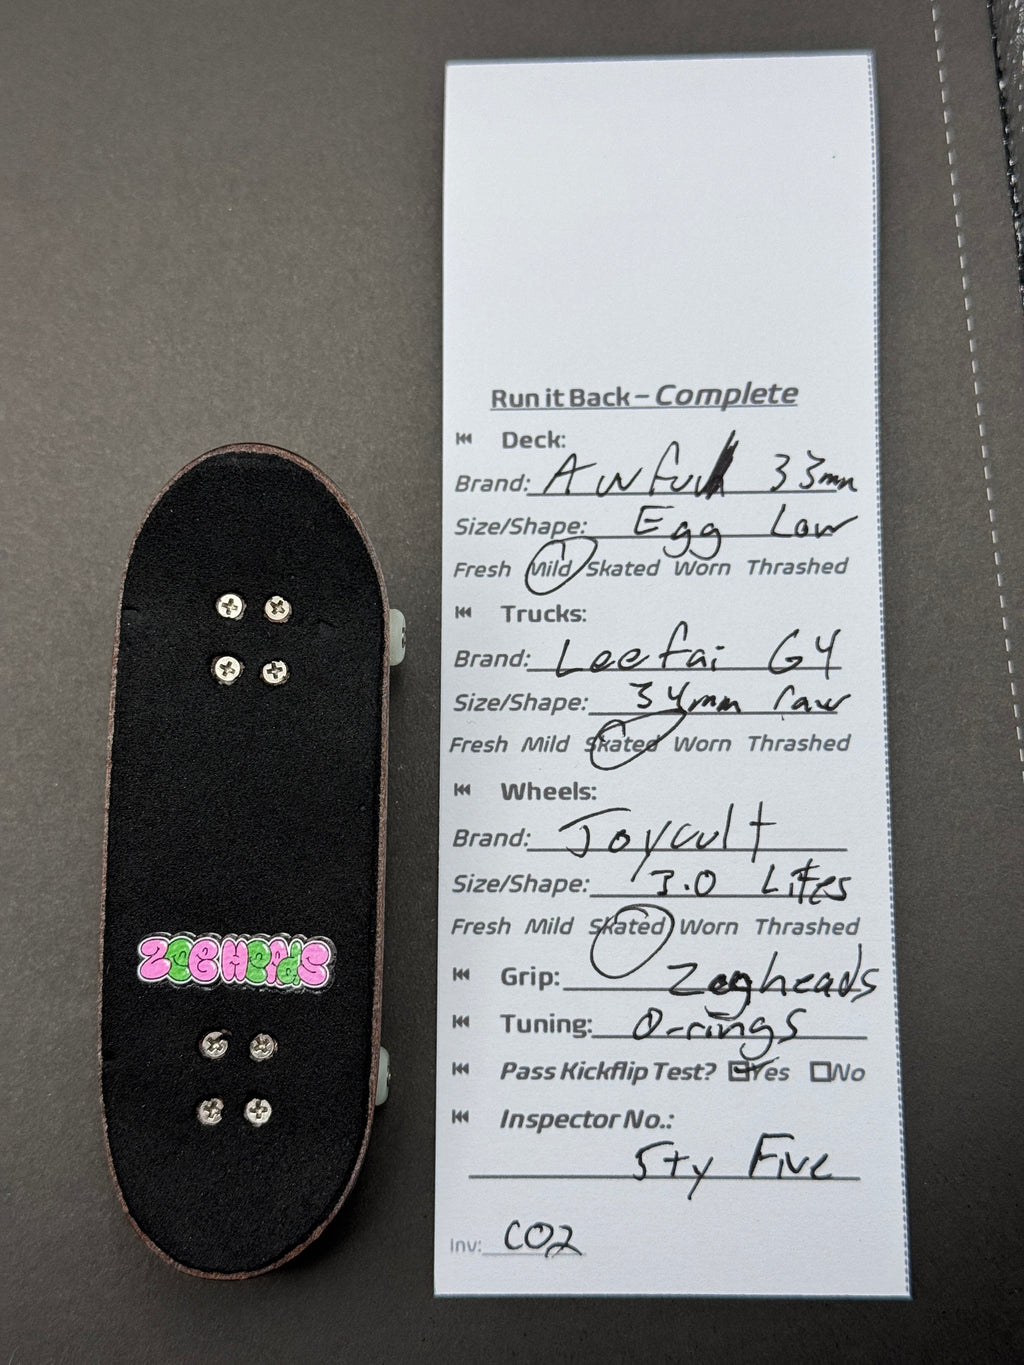 Run it Back – Complete
Deck:
Brand: Awful 33mm
Size/Shape: Egg Low
Fresh Mild Skated Worn Thrashed
Trucks:
Brand: Leefai G4
Size/Shape: 34mm raw
Fresh Mild Skated Worn Thrashed
Wheels:
Brand: Joycult
Size/Shape: 3.0 Lites
Fresh Mild Skated Worn Thrashed
Grip: Zegheads
Tuning: O-rings
Pass Kickflip Test? Yes No
Inspector No.:
Sty Five
Inv: CO2